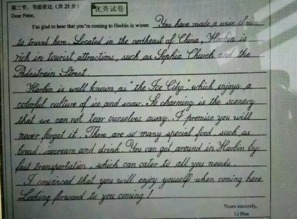 第二节:书面表达(共25分) 优秀试卷
Dear Peter,
I'm glad to hear that you're coming to Harbin in winter. You have made a wise choice
to travel here. Located in the northeast of China, Harbin is
rich in tourist attractions, such as Sophia Church and the
Pedestrian Street.
Harbin is well known as "the Ice City" which enjoys a
colorful culture of ice and snow. So charming is the scenery
that we can not tear ourselves away. I promise you will
never forget it. There are so many special food such as
bread, icecream and drink. You can get around in Harbin by
fast transportation, which can cater to all you needs.
I convinced that you will enjoy yourself when coming here.
Looking forward to you coming!
Yours sincerely,
Li Hua